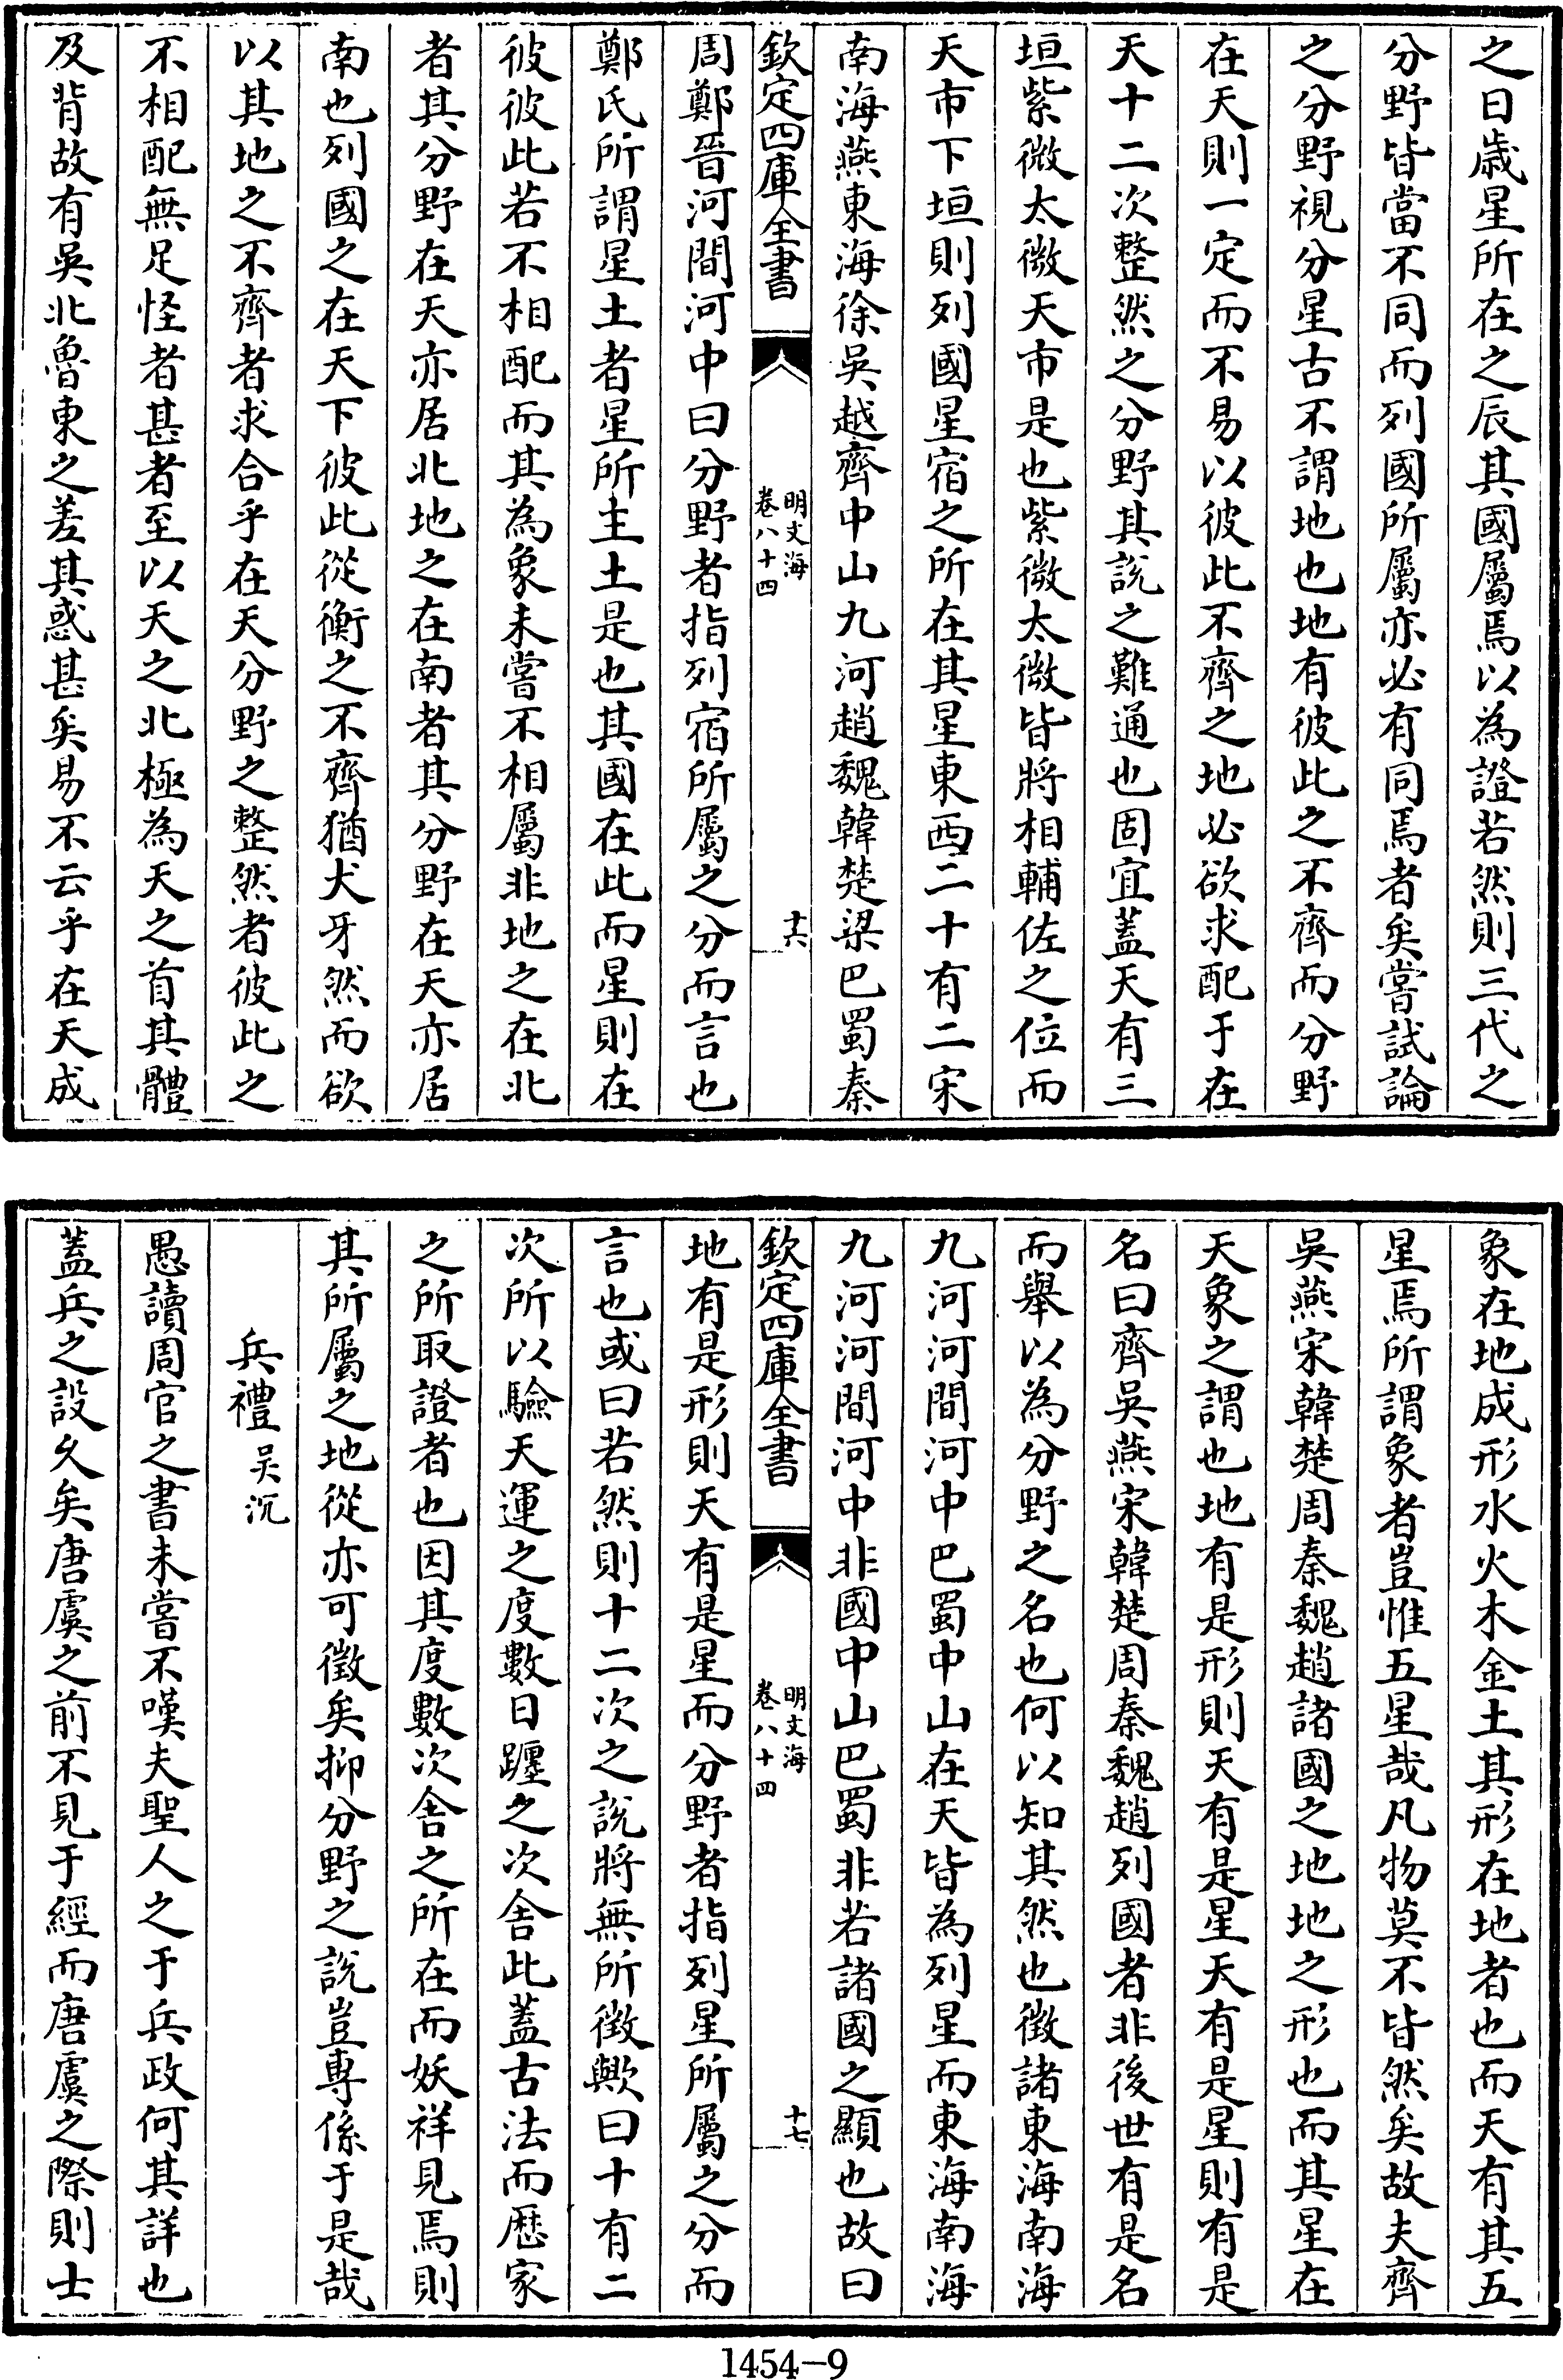 之日歳星所在之辰其國屬焉以為證若然則三代之
分野皆當不同而列國所屬亦必有同焉者矣嘗試論
之分野視分星古不謂地也地有彼此之不齊而分野
在天則一定而不易以彼此不齊之地必欲求配于在
天十二次整然之分野其説之難通也固宜蓋天有三
垣紫微太微天市是也紫微太微皆將相輔佐之位而
天市下垣則列國星宿之所在其星東西二十有二宋
南海燕東海徐吳越齊中山九河趙魏韓楚梁巴蜀秦
欽定四庫全書
明文海
卷八十四
十六
周鄭晉河間河中曰分野者指列宿所屬之分而言也
鄭氏所謂星土者星所主土是也其國在此而星則在
彼彼此若不相配而其為象未嘗不相屬非地之在北
者其分野在天亦居北地之在南者其分野在天亦居
南也列國之在天下彼此從衡之不齊猶犬牙然而欲
以其地之不齊者求合乎在天分野之整然者彼此之
不相配無足怪者甚者至以天之北極為天之首其體
及背故有吳北魯東之差其惑甚矣易不云乎在天成
象在地成形水火木金土其形在地者也而天有其五
星焉所謂象者豈惟五星哉凡物莫不皆然矣故夫齊
吳燕宋韓楚周秦魏趙諸國之地地之形也而其星在
天象之謂也地有是形則天有是星天有是星則有是
名曰齊吳燕宋韓楚周秦魏趙列國者非後世有是名
而舉以為分野之名也何以知其然也徴諸東海南海
九河河間河中巴蜀中山在天皆為列星而東海南海
九河河間河中非國中山巴蜀非若諸國之顯也故曰
欽定四庫全書
明文海
卷八十四
十七
地有是形則天有是星而分野者指列星所屬之分而
言也或曰若然則十二次之説將無所徴歟曰十有二
次所以驗天運之度數日躔之次舍此蓋古法而厯家
之所取證者也因其度數次舍之所在而妖祥見焉則
其所屬之地從亦可徵矣抑分野之説豈専係于是哉
兵禮 吳沉
愚讀周官之書未嘗不嘆夫聖人之于兵政何其詳也
蓋兵之設久矣唐虞之前不見于經而唐虞之際則士
1454-9